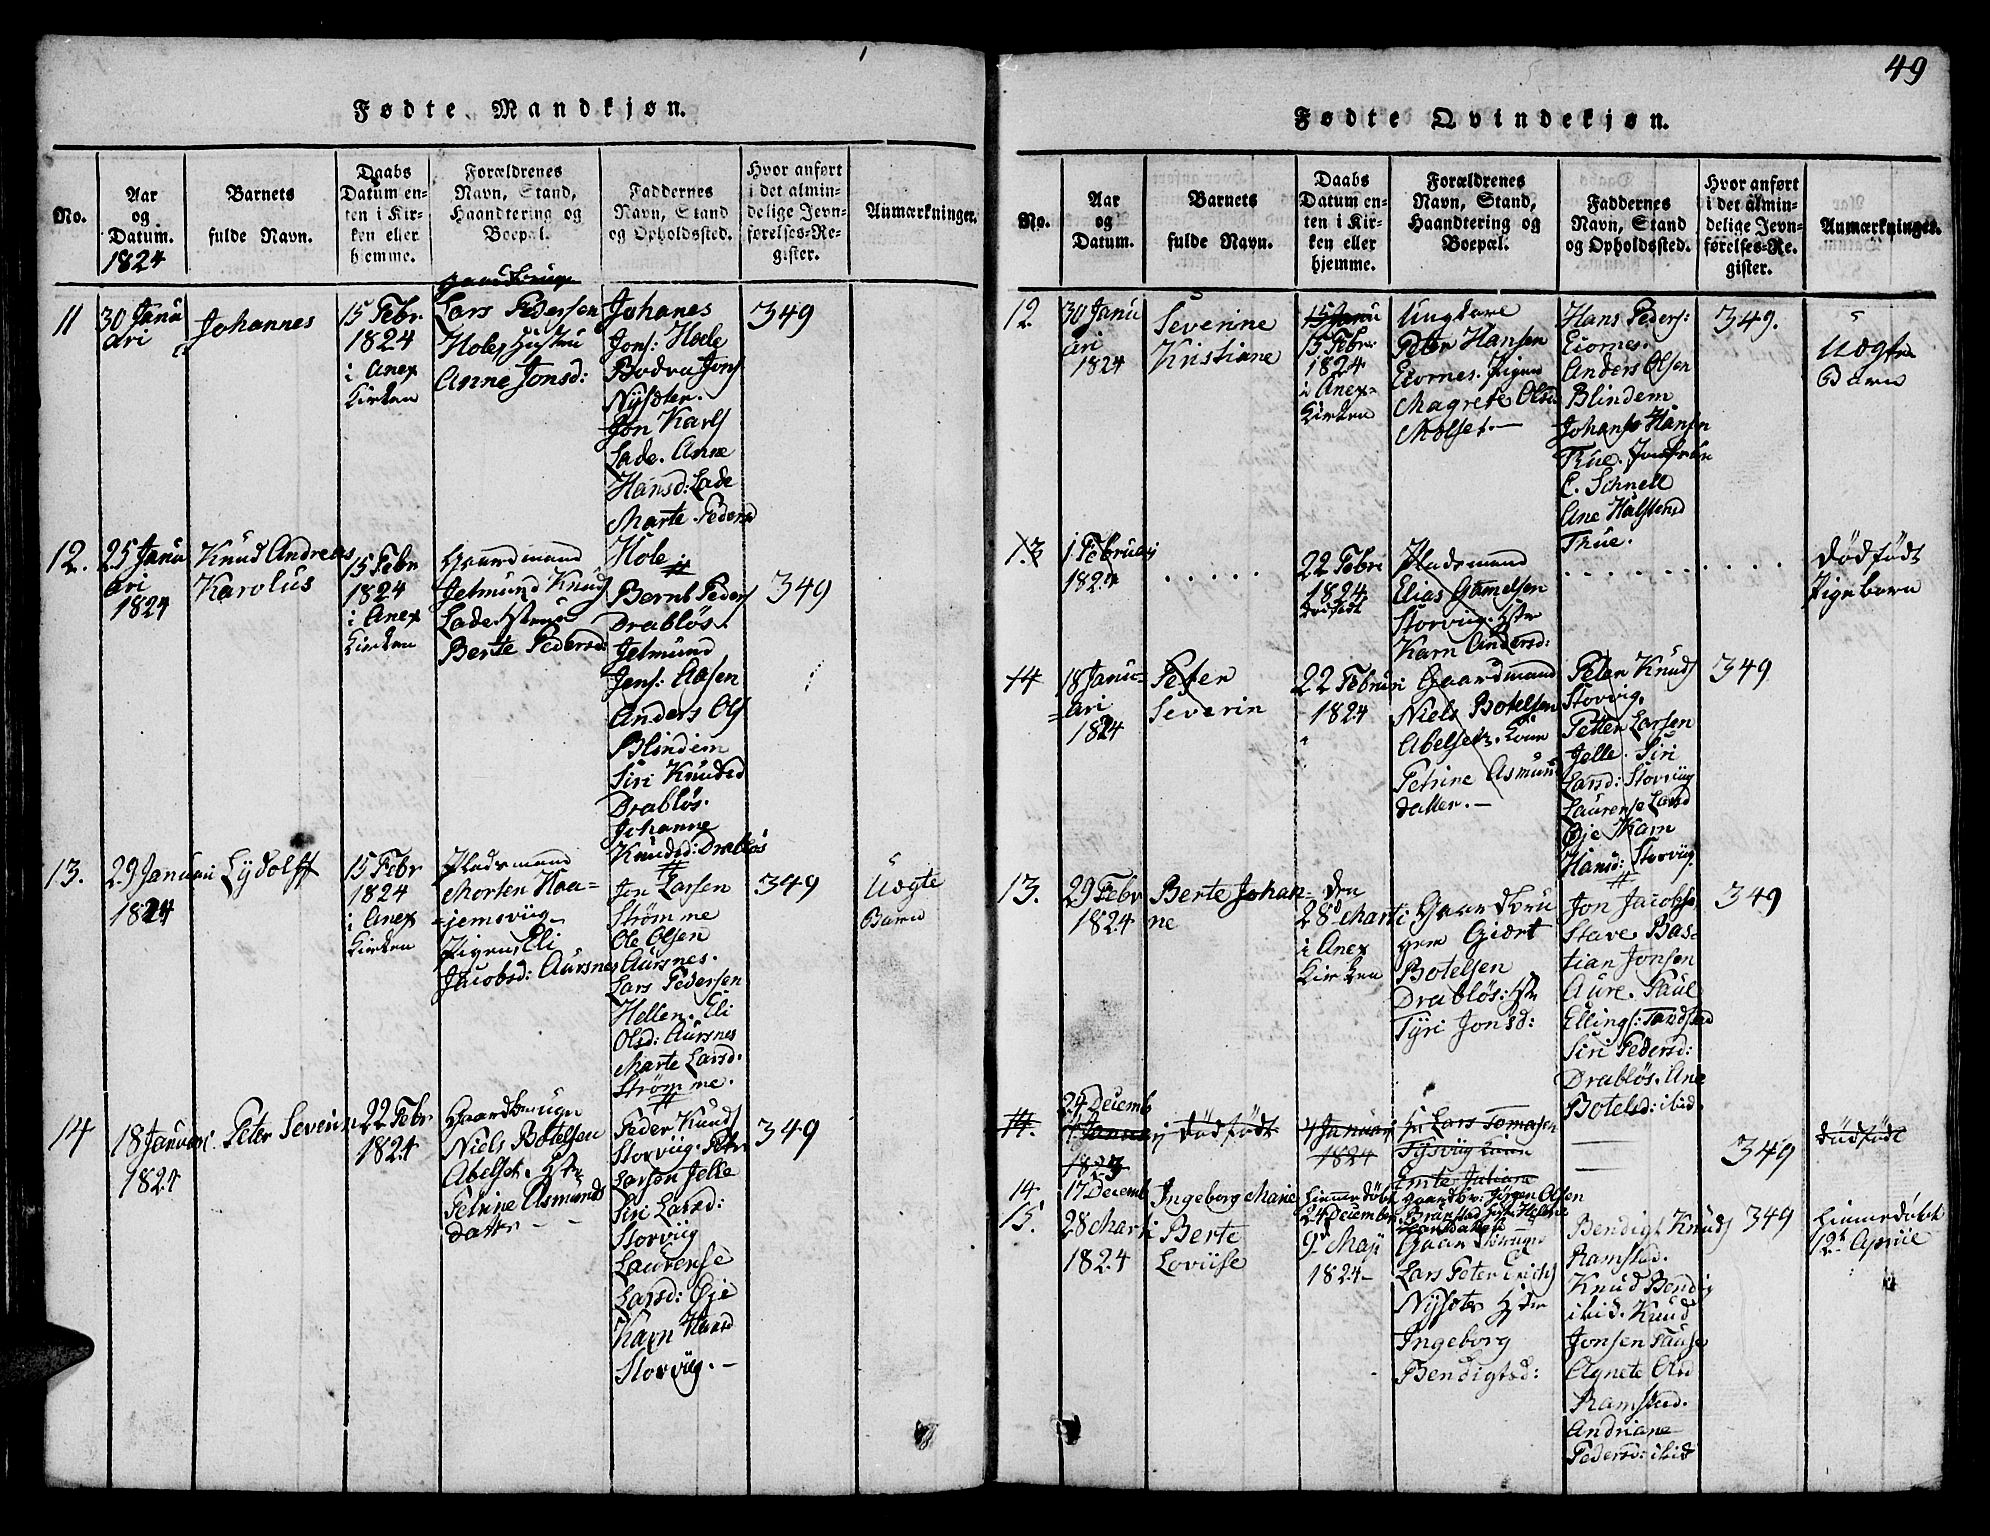 Fødte Mandkjøn.
No.
Aar
og
Datum.
1824
Barnets
fulde Navn.
Daabs
Datum en-
ten i Kir-
ken eller
hjemme.
Forældrenes
Navn, Stand,
Haandtering og
Boepæl.
Faddernes
Navn, Stand
og Opholdssted.
Hvor anført
i det almin-
delige Jevn-
førelses-Re-
gister.
Anmærkninger.
11
30 Janu
ari
Johannes
15 Febr
1824
i Anex
Kirken
Gaardbruger
Lars Pedersen
Hole, Hustru
Anne Jonsd:
Johanes
Jons: Hole
Jons
Nysæter.
Jon Karls
Lade. Anne
Hansd: Lade
Marte Pedersd
Hole
349
12.
25 Janu
ari
1824
Knud Andreas
Karolus
15 Febr
1824
i Anex
Kirken
Gaardmand
Jetmund Knuds
Lade. Hstru
Berte Pedersd:
Bernt Peders
Drabløs.
Jetmund
Jens: Aasen
Anders Ols
Blindem
Siri Knudsd
Drabløs.
Johanne
Knudsd: Drabløs
349
13.
29 Januari
1824
Lydolff
15 Febr
1824
i Anex
Kirken
Pladsmand
Morten Haa-
jemsviig
Pigen Eli
Jacobsd: Aursnes
Jon Larsen
Strømme
Ole Olsen
Aursnes.
Lars Pedersen
Hellen. Eli
Olsd: Aursnes
Marte Larsd.
Strømme.
349
Uægte
Barn
14
18 Januari
1824
Peter Severin
22 Febr
1824
Gaardbruger
Niels Botelsen
Abelset. Hstr
Petrine Asmunds
datter
Peder Knuds
Storviig. Petr
Larsen Jelle
Siri Larsd:
Storviig
Laurense
Larsd: Øje
Karn Hansd
Storviig. —
349
49
Fødte Qvindekjøn.
No.
Aar
og
Datum.
Barnets
fulde Navn.
Daabs
Datum en-
ten i Kir-
ken eller
hjemme.
Forældrenes
Navn, Stand,
Haandtering og
Boepæl.
Faddernes
Navn, Stand
og Opholdssted.
Hvor anført
i det almin-
delige Jevn-
førelses-Re-
gister.
Anmærkninger.
12.
30 Janu
ari
1824
Severine
Kristiane
15 Janu
15 Febr:
1824
i Anex-
Kirken
Ungkare
Peter Hansen
Eiornes. Pigen
Magrete Olsd.
Molset. —
Hans Peders:
Eiornes.
Anders Olsen
Blindem
Johans Hansen
Thue. Jomfrue
C. Schnell
Ane Halstensd
Thue.
349.
Uægte
Barn
13
1 Februarj
1824
. . . . .
22 Febri
1824
Pladsmand
Elias Gamelsen
Storviig. Hstr
Karn Andersd:
. . . . . . . . . .
Dødfødt
Pigebarn
14
18 Janu-
ari
1824
Peter
Severin
22 Februari
1824
Gaardmand
Niels Botelsen
Abelset. Kone
Petrine Asmuns
datter. —
Peter Knuds
Storviig.
Petter Larsen
Jelle. Siri
Larsd: Storviig
Laurense Larsd
Øje Karn
Hansd: Storviig.
349
13.
29 Febr
1824
Berte Johan-
ne
den
28d Marti
i Anex
Kirken
Gaardbru
gem Giert
Botelsen
Drabløs: Hstr
Tyri Jonsd:
Jon Jacobse
Stave. Bas-
tian Jonsen
Aure. Paul
Ellings: Tandstad
Siri Pedersd:
Drabløs. Ane
Botelsd: ibid.
349
14.
24 Decemb
1 Januarj
1823
Dødfødt
4 Januari
1824
Lars Tomasen
Tysviig
Emte Juliane
349
Dødfødt
14
17 Decemb
Ingeborg Marie
hiemmedøbt
24 December
Gaardbr: Jørgen Olsen
Brunstad
15.
28 Marti
1824
Berte
Lovise
9d Maji
1824 —
Gaardbruger
Lars Peter Erichs
Nysæter Hstr
Ingeborg
Bendigtsd:
Bendigt Knuds
Ramstad.
Knud Bendig
ibid. Knud
Jonsen
Agnete Olsd
Ramstad.
Andriane
Pedersd: ibid
349
hiemedøbt
12t Aprile